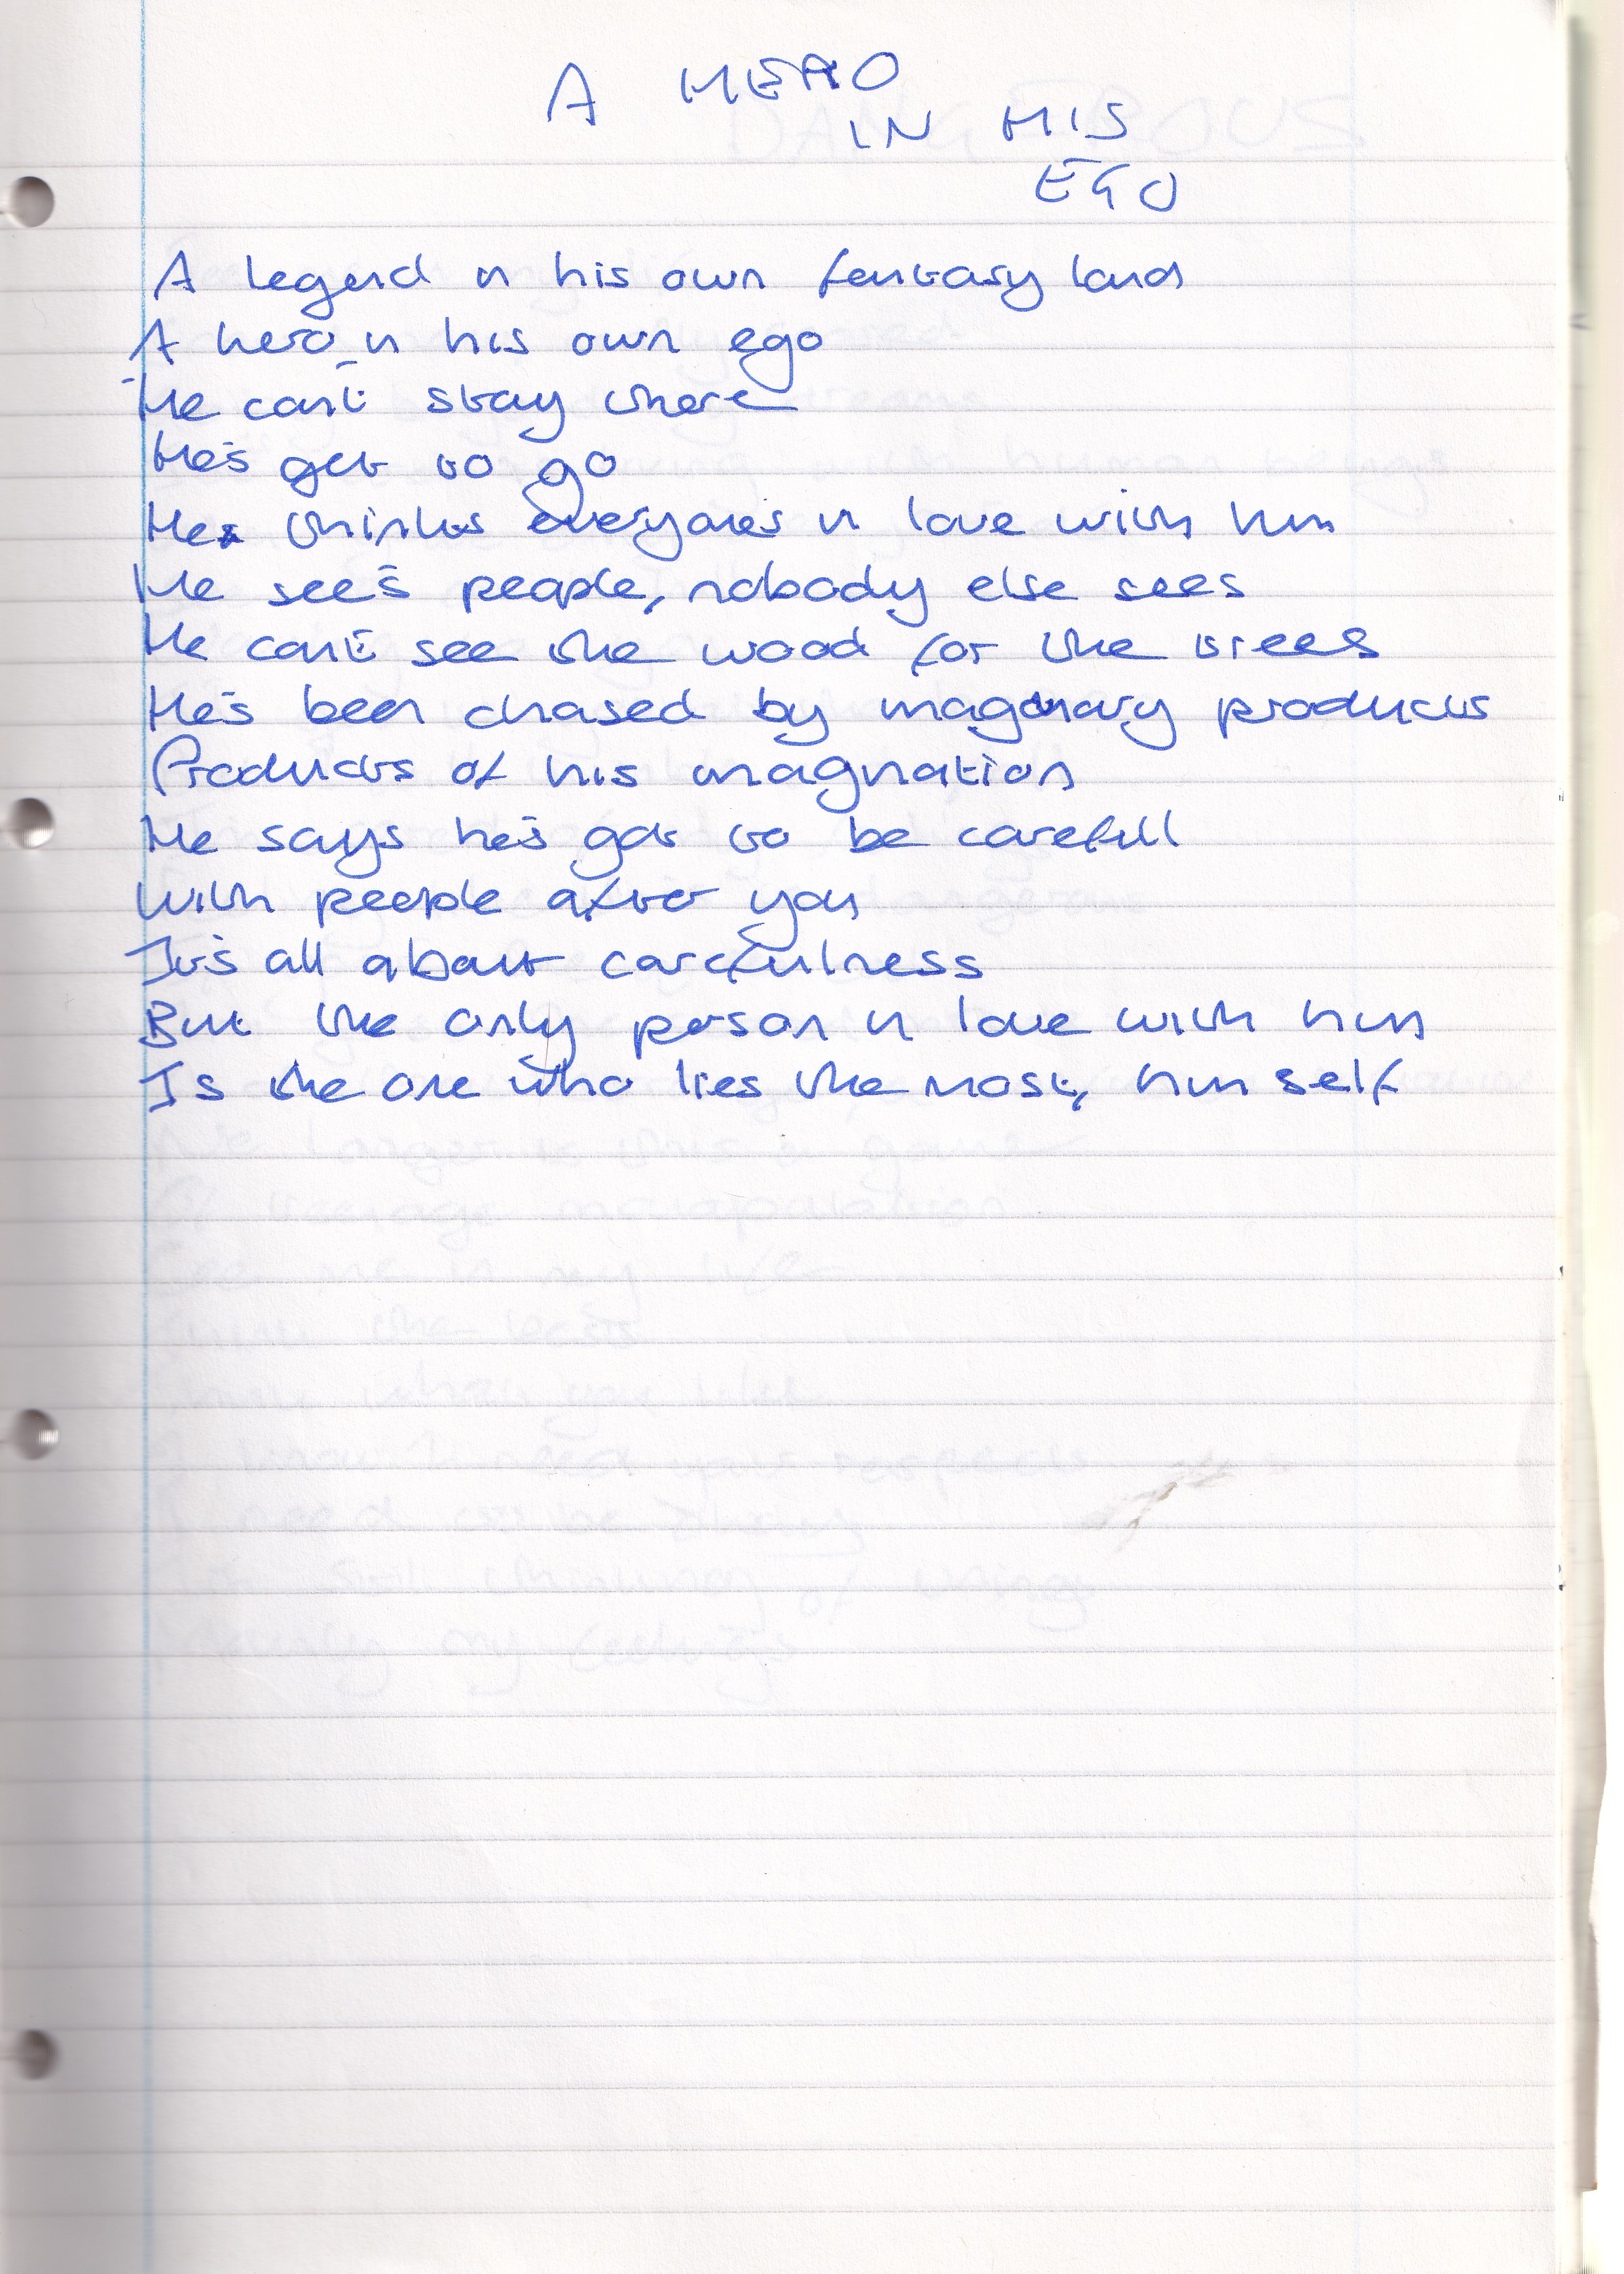 A HERO
IN HIS
EGO
A legend in his own fantasy land
A hero in his own ego
He can't stay there
He's got to go
He thinks everyone's in love with him
He see's people, nobody else sees
He can't see the wood for the trees
He's been chased by imaginary products
Products of his imagination
He says he's got to be carefull
With people after you
It's all about carefulness
But the only person in love with him
Is the one who lies the most, him self